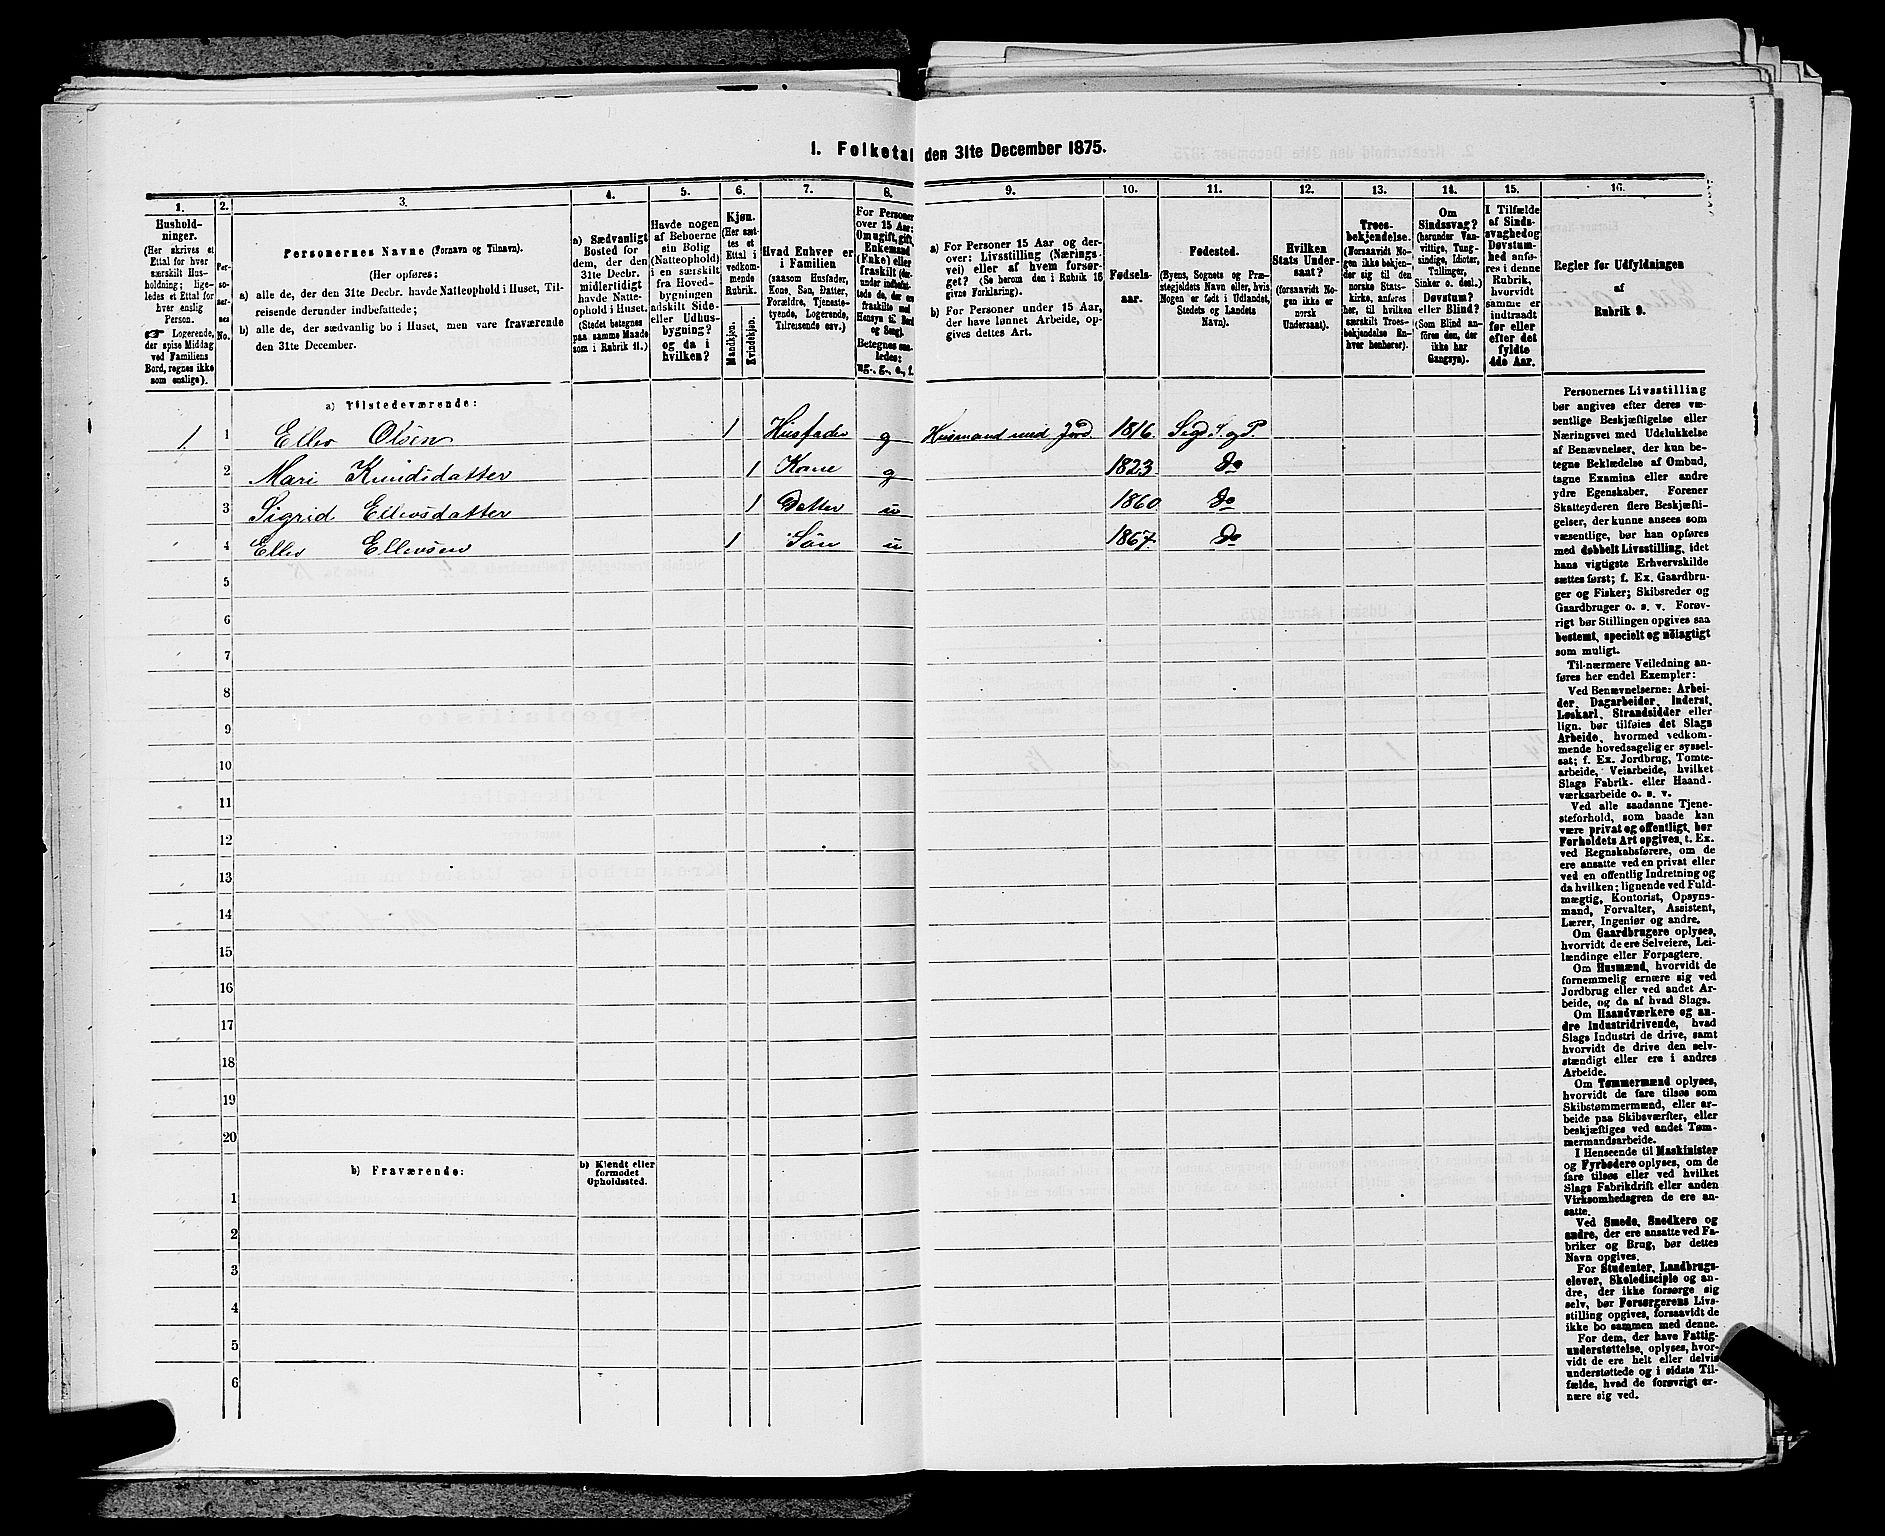 1. Folketal den 31te December 1875.
1. 2. 3. 4. 5. 6. 7. 8. 9. 10. 11. 12. 13. 14. 15. 16.
Hushold-
ninger.
(Her skrives et
Ettal for hver
særskilt Hus-
holdning; lige-
ledes et Ettal for
hver enslig
Person.
☞ Logerende,
der spise Middag
ved Familiens
Bord, regnes ikke
som enslige).
Per-
so-
ner-
nes
No.
Personernes Navne (Fornavn og Tilnavn).
(Her opføres:
a) alle de, der den 31te Decbr. havde Natteophold i Huset, Til-
reisende derunder indbefattede;
b) alle de, der sædvanlig bo i Huset, men vare fraværende
den 31te December.
a) Sædvanligt
Bosted for
dem, der den
31te Decbr.
midlertidigt
havde Natte-
ophold i Huset.
(Stedet betegnes
paa samme Maade
som i Rubrik 11.)
Havde nogen
af Beboerne
ein Bolig
(Natteophold)
i en særskilt
fra Hoved-
bygningen
adskilt Side
eller Udhus-
bygning?
og da i
hvilken?
Kjøn.
(Her sæt-
tes et
Ettal i
vedkom-
mende
Rubrik.
Mandkjøn.
Kvindekjøn.
Hvad Enhver er
i Familien
(saasom Husfader,
Kone, Søn, Datter,
Forældre, Tjeneste-
tyende, Logerende,
Tilreisende osv.)
For Personer
over 15 Aar:
Om ugift, gift,
Enkemand
(Enke) eller
fraskilt (der-
under indbefat-
tede de, der ere
fraskilte med
Hensyn til Bord
og Seng).
Betegnes saa-
ledes:
ug., g., e., f.
a) For Personer 15 Aar og der-
over: Livsstilling (Nærings-
vei) eller af hvem forsør-
get? (Se herom den i Rubrik 16
givne Forklaring).
b) For Personer under 15 Aar,
der have lønnet Arbeide, op-
gives dettes Art.
Fødsels-
aar.
Fødested.
(Byens, Sognets og Præ-
stegjeldets Navn eller, hvis
Nogen er født i Udlandet,
Stedets og Landets
Navn).
Hvilken
Stats Under-
saat?
(forsaavidt No-
gen ikke er
norsk
Undersaat).
Troes-
bekjendelse.
(Forsaavidt No-
gen ikke bekjen-
der sig til den
norske Stats-
kirke, anføres
her, til hvilken
særskilt Troes-
bekjendelse En-
hver henhører).
Om
Sindssvag?
(herunder Van-
vittige, Tung-
sindige, Idioter,
Tullinger,
Sinker o. desl.)
Døvstum?
eller Blind?
(Som Blind an-
føres den, der
ikke har
Gangsyn).
I Tilfælde
af Sinds-
svaghed og
Døvstum-
hed anfø-
res i denne
Rubrik,
hvorvidt
samme er
indtraadt
før eller
efter det
fyldte
4de Aar.
Regler for Udfyldningen
af
Rubrik 9.
a) Tilstedeværende:
1. 1 Ellev Olsen 1 Husfader g Husmand med Jord. 1816. Sigd S. og P.
2 Mari Knudsdatter 1 Kone g 1823 Do
3 Sigrid Ellevsdatter 1 Datter u 1860 Do
4 Ellev Ellevsen 1 Søn u 1867. Do
5
6
7
8
9
10
11
12
13
14
15
16
17
18
19
20
b) Fraværende:
b) Kjendt eller
formodet
Opholdssted.
1
2
3
4
5
6
Personernes Livsstilling
bør angives efter deres væ-
sentlige Beskjæftigelse eller
Næringsvei med Udelukkelse
af Benævnelser, der kun be-
tegne Beklædelse af Ombud,
tagne Examina eller andre
ydre Egenskaber. Forener
Skatteyderen flere Beskjæfti-
gelser, der kunne ansees som
væsentlige, bør han opføres
med dobbelt Livsstilling, idet
hans vigtigste Erhvervskilde
sættes først; f. Ex. Gaardbru-
ger og Fisker; Skibsreder og
Gaardbruger o. s. v. Forøv-
rigt bør Stillingen opgives saa
bestemt, specielt og nøiagtigt
som muligt.
Til nærmere Veiledning an-
føres her endel Exempler:
Ved Benævnelserne: Arbei-
der, Dagarbeider, Inderst,
Løskarl, Strandsidder eller
lign. bør tilføies det Slags
Arbeide, hvormed vedkom-
mende hovedsagelig er syssel-
sat; f. Ex. Jordbrug, Tomte-
arbeide, Veiarbeide, hvilket
Slags Fabrik- eller Haand-
værksarbeide o. s. v.
Ved alle saadanne Tjene-
steforhold, som baade kan
være privat og offentligt, bør
Forholdets Art opgives, t. Ex.
ved Regnskabsførere, om de
ere ansatte ved en privat eller
ved en offentlig Indretning og
da hvilken; lignende ved Fuld-
mægtig, Kontorist, Opsyns-
mand, Forvalter, Assistent,
Lærer, Ingeniør og andre.
Om Gaardbrugere oplyses,
hvorvidt de ere Selveiere, Lei-
lændinge eller Forpagtere.
Om Husmænd, hvorvidt de
fornemmelig ernære sig ved
Jordbrug eller ved andet Ar-
beide, og da af hvad Slags.
Om Haandværkere og an-
dre Industridrivende, hvad
Slags Industri de drive, samt
hvorvidt de drive den selv-
stændigt eller ere i andres
Arbeide.
Om Tømmermænd oplyses,
hvorvidt de fare tilsøs som
Skibstømmermænd, eller ar-
beide paa Skibsværfter, eller
beskjæftiges ved andet Tøm-
mermandsarbeide.
I Henseende til Maskinister
og Fyrbødere oplyses, om de
fare tilsøs eller ved hvilket
Slags Fabrikdrift eller anden
Virksomhedsgren de ere an-
satte.
Ved Smede, Snedkere og
andre, der ere ansatte ved Fa-
briker og Brug, bør dettes
Navn opgives.
For Studenter, Landbrugs-
elever, Skoledisciple og an-
dre, der ikke forsørge sig
selv, bør Forsørgerens Livs-
stilling opgives, forsaavidt de
ikke bo sammen med denne.
For dem, der have Fattig-
understøttelse, oplyses, hvor-
vidt de ere helt eller delvis
understøttede og i sidste Til-
fælde, hvad de forøvrigt er-
nære sig ved.